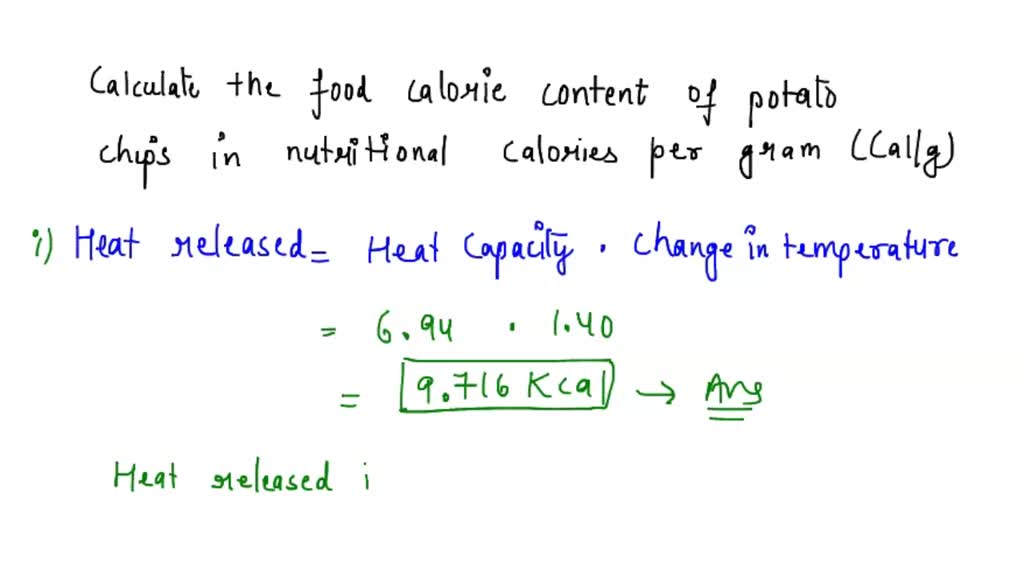 Calculate the food calorie content of potato
chips in nutritional calories per gram (Cal/g)
i) Heat released = Heat Capacity . Change in temperature
= 6.94 . 1.40
= 9.716 Kcal → Ans
Heat released i